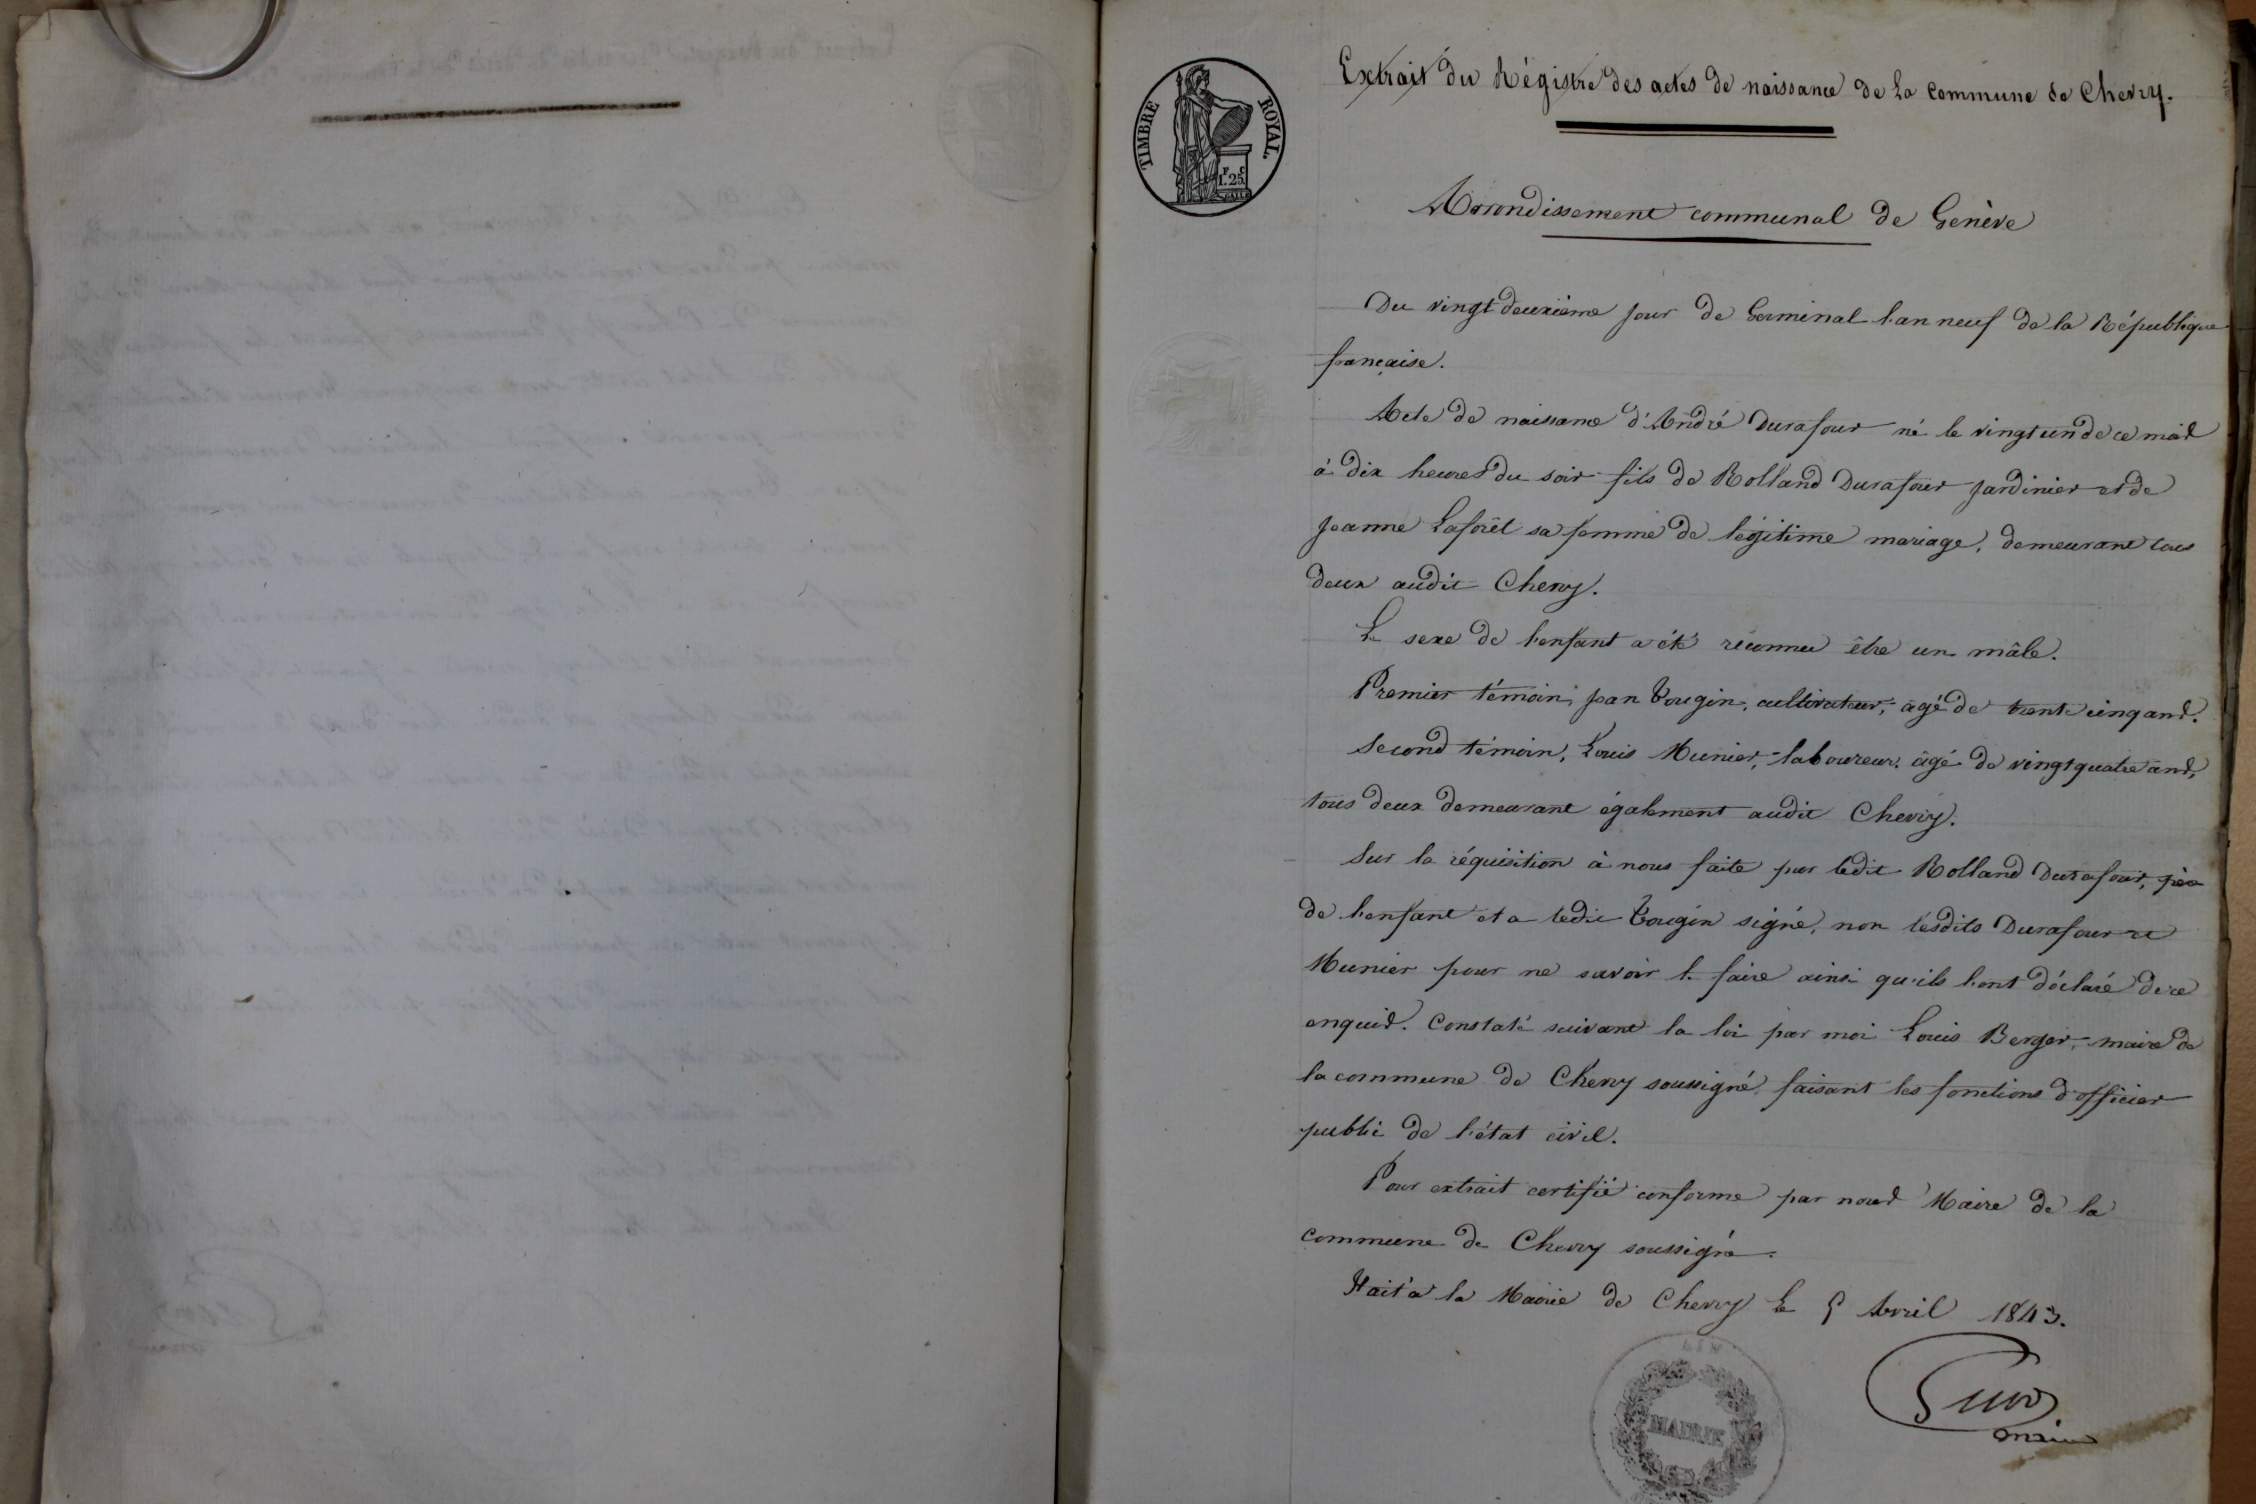 TIMBRE ROYAL.
F. C.
1.25
Extrait du Régistre des actes de naissance de la Commune de Chevry.
Arrondissement communal de Genève
Du vingt deuxième jour de Germinal l'an neuf de la République
française.
Acte de naissance d'André Durafour né le vingt un de ce mois
à dix heures du soir fils de Rolland Durafour jardinier et de
Jeanne Laforêt sa femme de légitime mariage, demeurant tous
deux audit Chevry.
Le sexe de l'enfant a été reconnu être un mâle.
Premier témoin, jean Tougin, cultivateur, âgé de trente cinq ans.
Second témoin, Louis Munier, laboureur, âgé de vingt quatre ans,
tous deux demeurant également audit Chevry.
Sur la réquisition à nous faite par ledit Rolland Durafour, père
de l'enfant et a ledit Tougin signé, non lesdits Durafour et
Munier pour ne savoir le faire ainsi qu'ils l'ont déclaré de ce
enquis. Constaté suivant la loi par moi Louis Berger, maire de
la commune de Chevry soussigné, faisant les fonctions d'officier
public de l'état civil.
Pour extrait certifié conforme par nous Maire de la
Commune de Chevry soussigné.
Fait à la Mairie de Chevry le 5 Avril 1843.
maire
MAIRIE